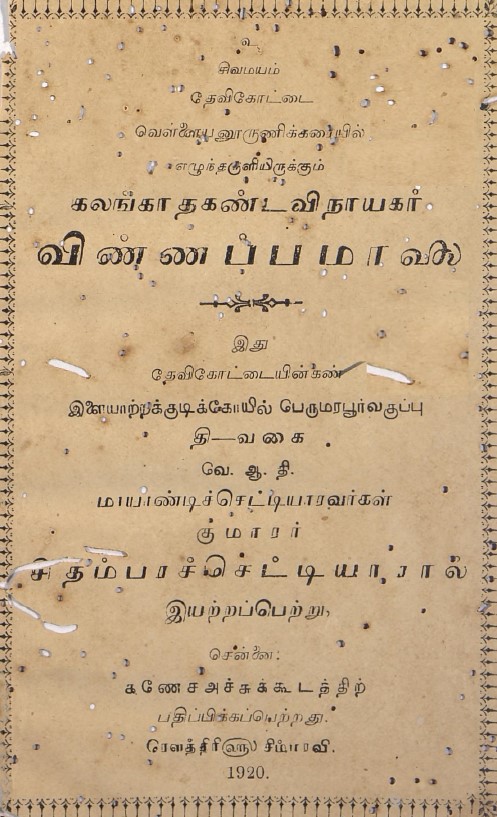 உ
சிவமயம்
தேவிகோட்டை
வெள்ளையனூருணிக்கரையில்
எழுந்தருளியிருக்கும்
கலங்காதகண்டவிநாயகர்
விண்ணப்பமாலை
இது
தேவிகோட்டையின்கண்
இளையாற்றக்குடிக்கோயில் பெருமரபூர்வகுப்பு
தி—வகை
வே. ஆ. தி.
மாயாண்டிச்செட்டியாரவர்கள்
குமாரர்
சிதம்பரச்செட்டியாரால்
இயற்றப்பெற்று,
சென்னை:
கணேசஅச்சுக்கூடத்திற்
பதிப்பிக்கப்பெற்றது.
ரௌத்திரிளு
1920.